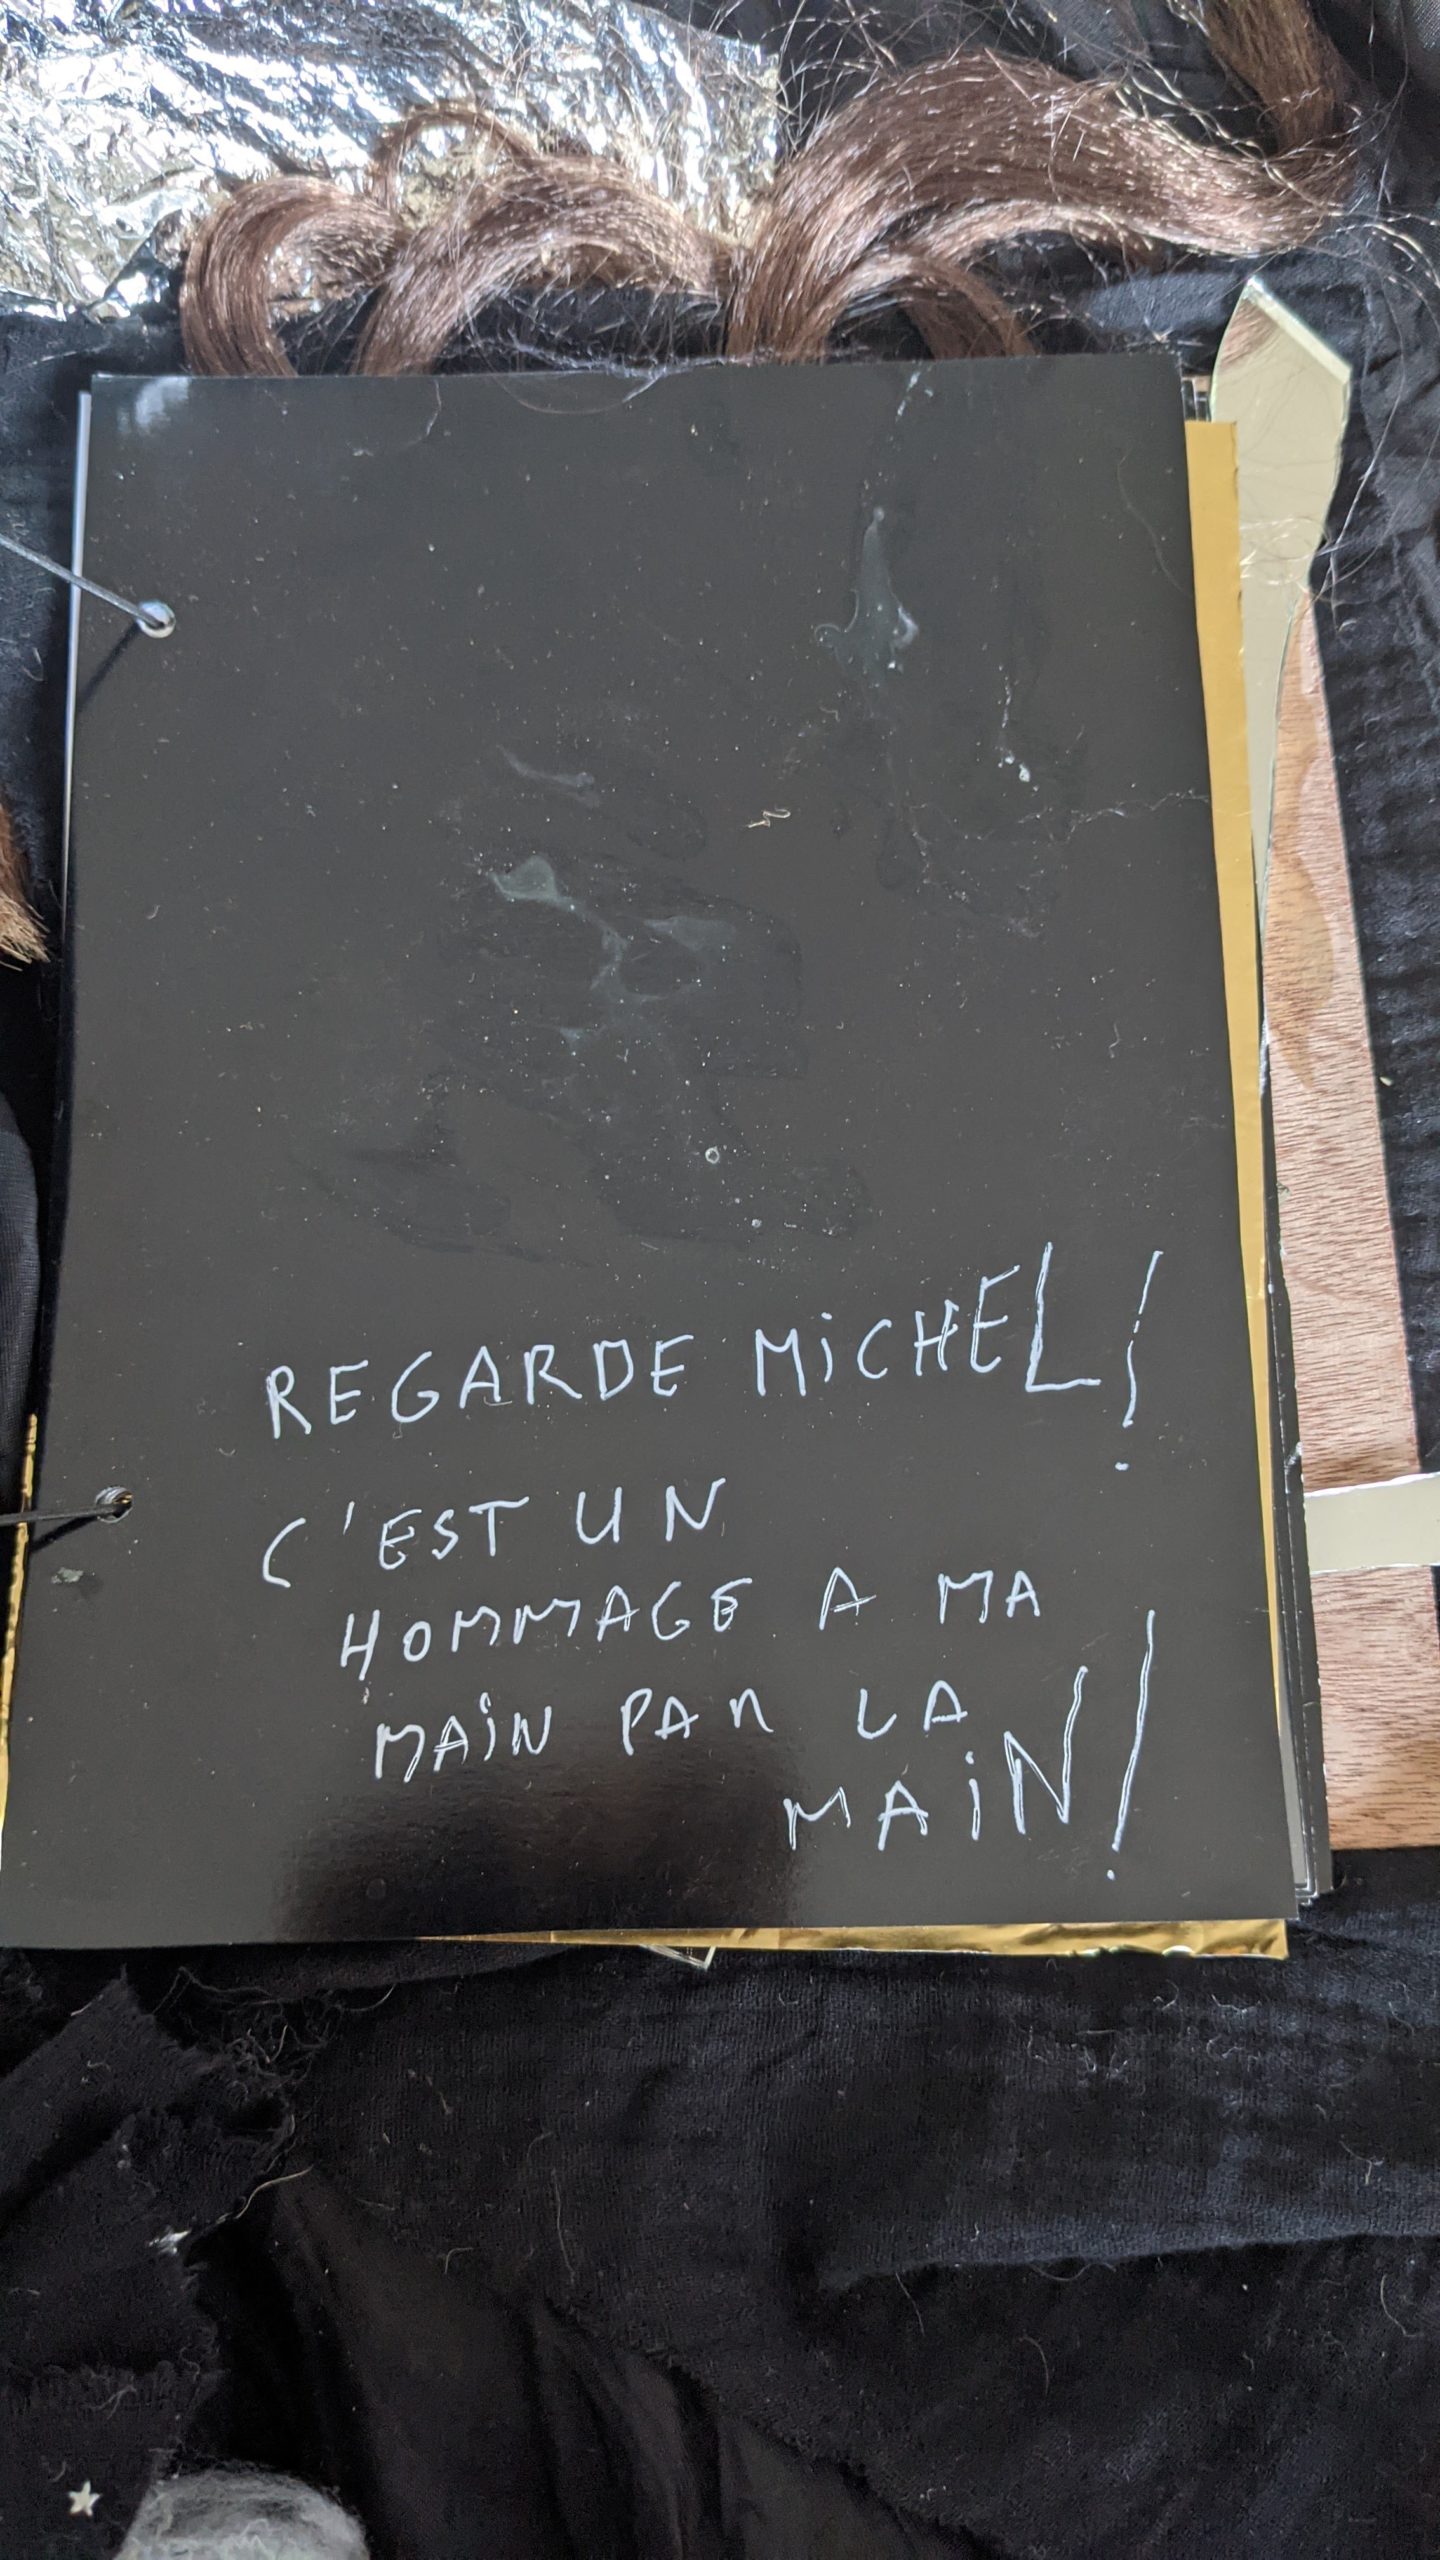 REGARDE MiCHEL!
C'EST UN
HOMMAGE A MA
MAiN PAR LA
MAiN!